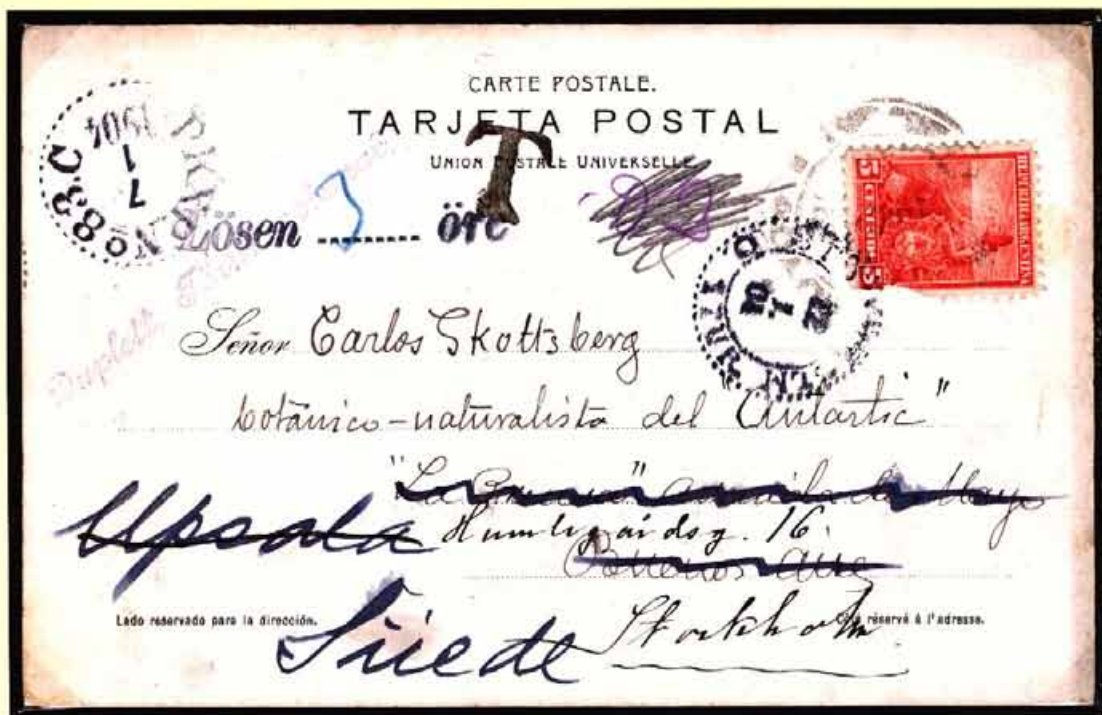 CARTE POSTALE.
TARJETA POSTAL
UNION POSTALE UNIVERSELLE
1904
1
7
No 83 C
Lösen J öre
T
5 CENTAVOS 5
REPUBLICA ARGENTINA
Señor Carlos Skottsberg
botánico-naturalista del Antartic"
"La
Upsala Humlegårdsg. 16.
Buenos Aires
Lado reservado para la dirección.
réservé à l'adresse.
Süede Stockholm
Duplett